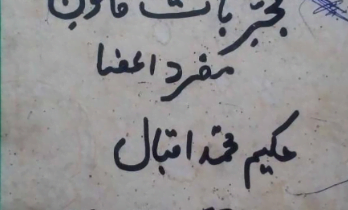 مجربات قانون
مفرد اعضا
حکیم محمد اقبال